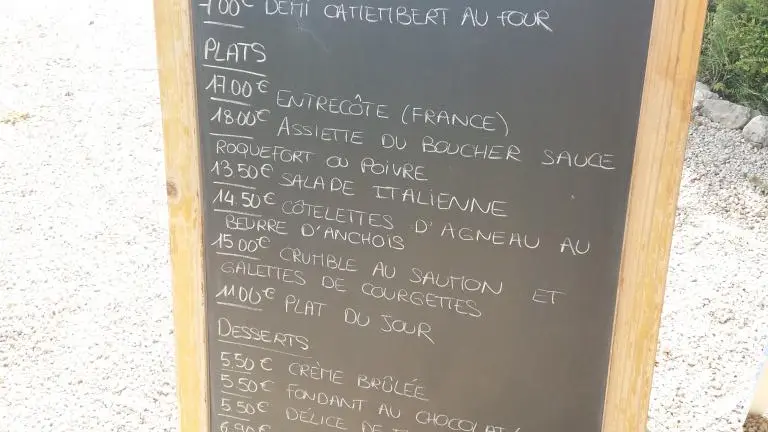 7.00€ DEMI CAMEMBERT AU FOUR
PLATS
17.00€ ENTRECÔTE (FRANCE)
18.00€ ASSIETTE DU BOUCHER SAUCE
ROQUEFORT OU POIVRE
13.50€ SALADE ITALIENNE
14.50€ CÔTELETTES D'AGNEAU AU
BEURRE D'ANCHOIS
15.00€ CRUMBLE AU SAUMON ET
GALETTES DE COURGETTES
11.00€ PLAT DU JOUR
DESSERTS
5.50€ CRÈME BRÛLÉE
5.50€ FONDANT AU CHOCOLAT
5.50€ DÉLICE DE
6.90€